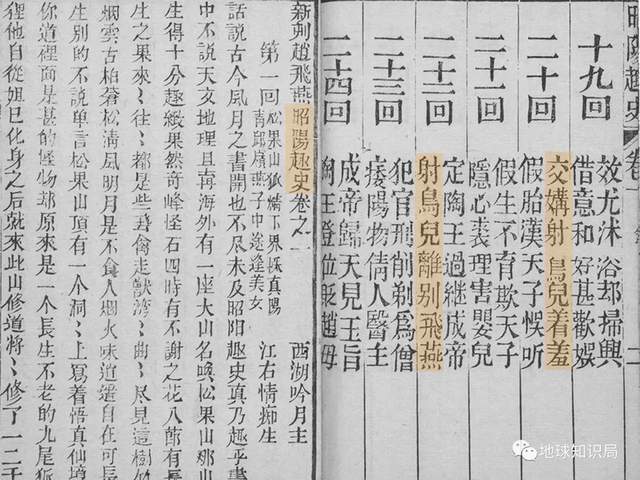 昭陽趣史 卷一
十九回
效尤沐浴却掃興
借意和好甚歡娛
二十回
交媾射鳥兒着羞
假胎漢天子悮听
二十一回
假生不育欺天子
隱心裴理害嬰兒
二十二回
定陶王過繼成帝
射鳥兒離别飛燕
二十三回
犯官刑削剃爲僧
痿陽物倩人醫主
二十四回
成帝歸天見玉旨
陶王登位貶趙母
新刋趙飛燕昭陽趣史卷之一
西湖吟月主
江右情痴生
第一回
松果山狐精下界採真陽
燕子中途逢美女
話說古今風月之書開也不尽未及昭陽趣史真乃趣乎書
中不說天文地理且壽海外有一座大山名喚松果山那山
生得十分趣緻果然奇峰怪石四時有不謝之花八節有長
生之果來〻往〻都是些異禽走獸湾〻曲〻尽見這樹似
烟雲古柏蒼松清風明月是不食人烟火味逍遥自在可長
生别的不説单言松果山頂有一个洞〻上寫着悟真仙境
你道裡面是甚的怪物却原來是一个長生不老的九尾狐
狸他自從妲己化身之後就來此山修道將〻修了一二千
地球知识局